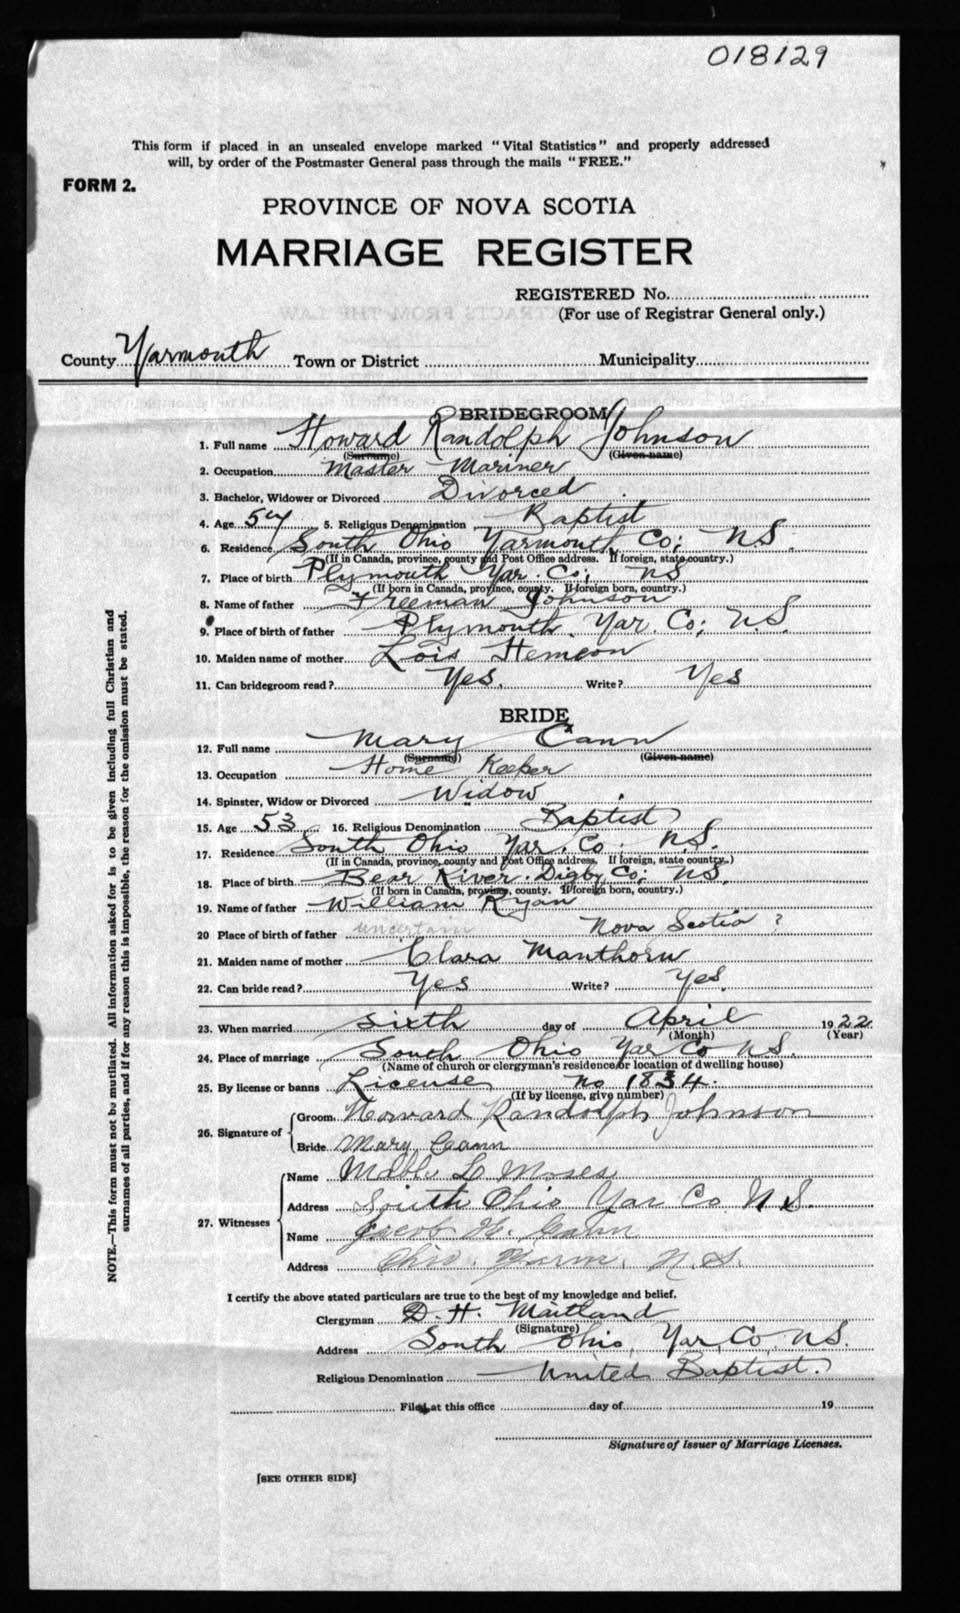 018129
This form if placed in an unsealed envelope marked "Vital Statistics" and properly addressed
will, by order of the Postmaster General pass through the mails "FREE."
FORM 2.
PROVINCE OF NOVA SCOTIA
MARRIAGE REGISTER
REGISTERED No.
(For use of Registrar General only.)
County Yarmouth Town or District Municipality
BRIDEGROOM
1. Full name Howard Randolph Johnson
(Surname) (Given name)
2. Occupation Master Mariner
3. Bachelor, Widower or Divorced Divorced
4. Age 54 5. Religious Denomination Baptist
6. Residence South Ohio Yarmouth Co; N.S.
(If in Canada, province, county and Post Office address. If foreign, state country.)
7. Place of birth Plymouth Yar. Co; NS
(If born in Canada, province, county. If foreign born, country.)
8. Name of father Freeman Johnson
9. Place of birth of father Plymouth Yar. Co; N.S.
10. Maiden name of mother Lois Hemeon
11. Can bridegroom read? Yes. Write? Yes
BRIDE
12. Full name Mary Cann
(Surname) (Given name)
13. Occupation Home Keeper
14. Spinster, Widow or Divorced Widow
15. Age 53 16. Religious Denomination Baptist
17. Residence South Ohio Yar. Co. N.S.
(If in Canada, province, county and Post Office address. If foreign, state country.)
18. Place of birth Bear River. Digby Co; NS.
(If born in Canada, province, county. If foreign born, country.)
19. Name of father William Ryan
20 Place of birth of father uncertain Nova Scotia ?
21. Maiden name of mother Clara Manthorn
22. Can bride read? Yes Write? Yes.
23. When married sixth day of April 1922
(Month) (Year)
24. Place of marriage South Ohio Yar Co N.S.
(Name of church or clergyman's residence or location of dwelling house)
25. By license or banns License no 1834.
(If by license, give number)
26. Signature of Groom Howard Randolph Johnson
Bride Mary Cann
27. Witnesses Name L Moses
Address South Ohio Yar Co N.S.
Name Jacob H. Cann
Address Ohio. Yarm. N.S.
I certify the above stated particulars are true to the best of my knowledge and belief.
Clergyman D. H. Maitland
(Signature)
Address South Ohio, Yar. Co. N.S.
Religious Denomination United Baptist.
Filed at this office day of 19
Signature of Issuer of Marriage Licenses.
[SEE OTHER SIDE]
NOTE.—This form must not be mutilated. All information asked for is to be given including full Christian and
surnames of all parties, and if for any reason this is impossible, the reason for the omission must be stated.